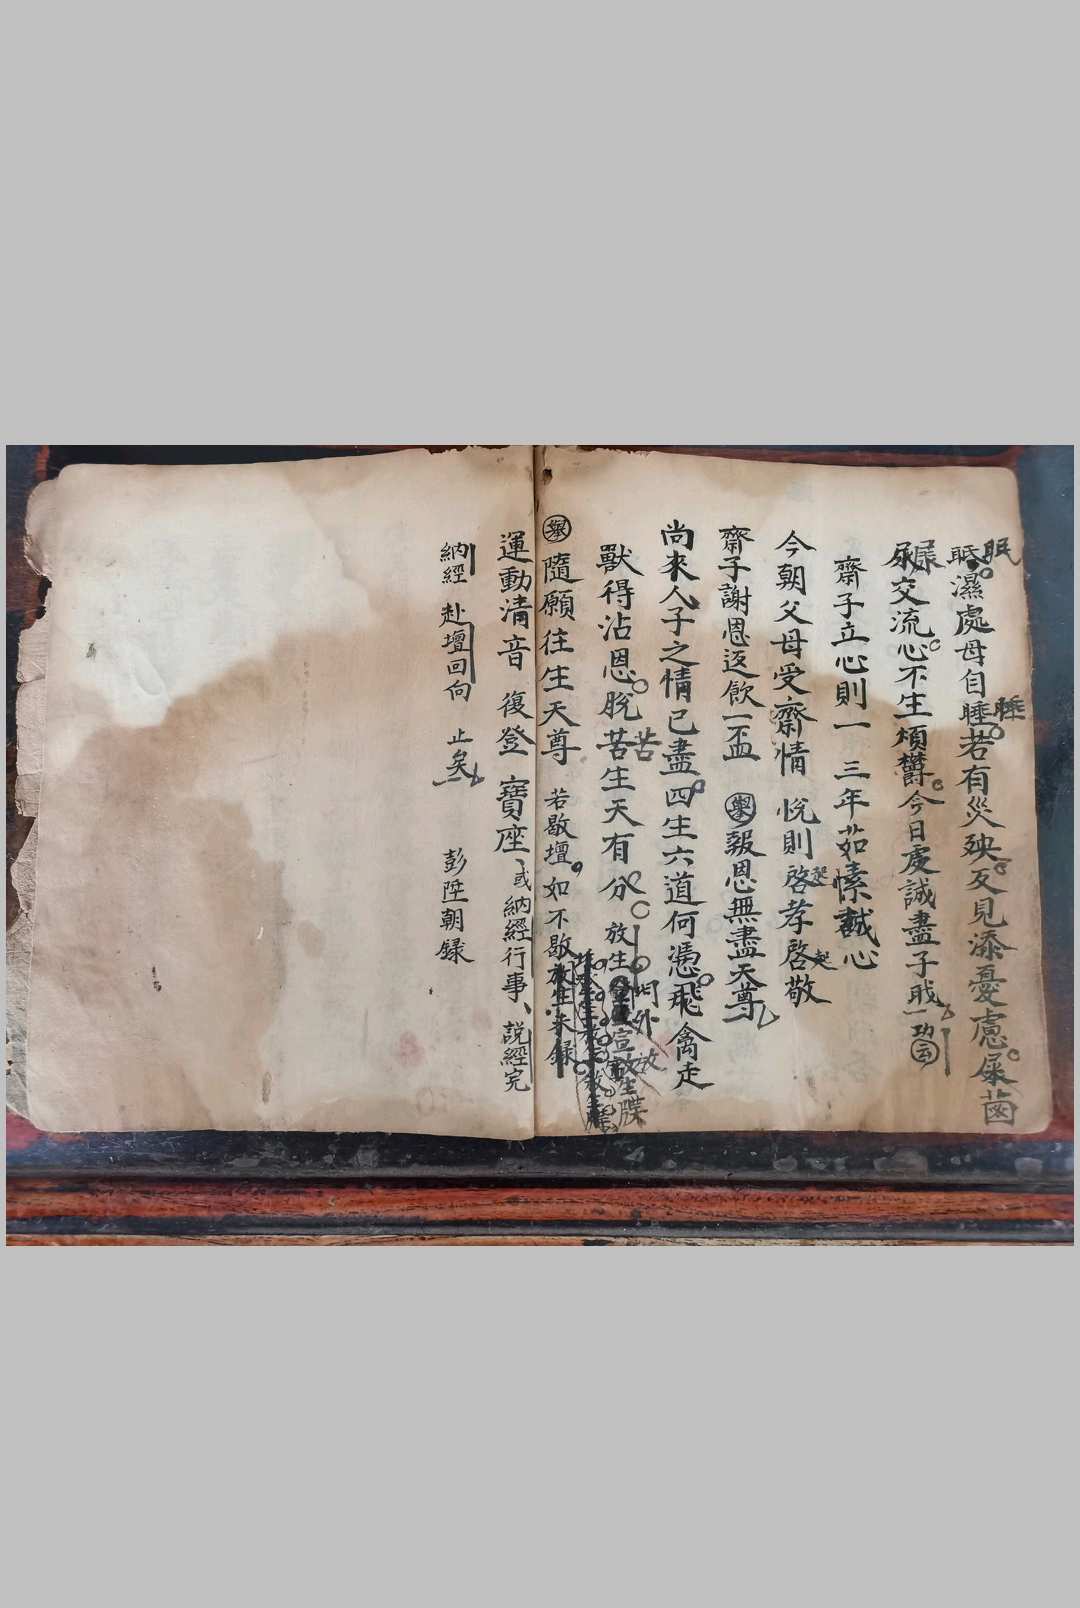 眠濕處母自睡若有災殃反見添憂慮屎
尿交流心不生煩欝今日虔誠盡子
齋子立心則一 三年茹愫誠心
今朝父母受齋情 悦則啓孝啓敬
齋子謝恩返飲一盃 舉報恩無盡天尊
尚來人子之情已盡四生六道何憑飛禽走
獸得沾恩脱苦生天有分 放生 宣放生牒
舉隨願往生天尊 若歇壇如不歇放生未録
運動清音 復登寶座、或納經行事、説經完
納經 赴壇回向 止矣
彭陞朝録